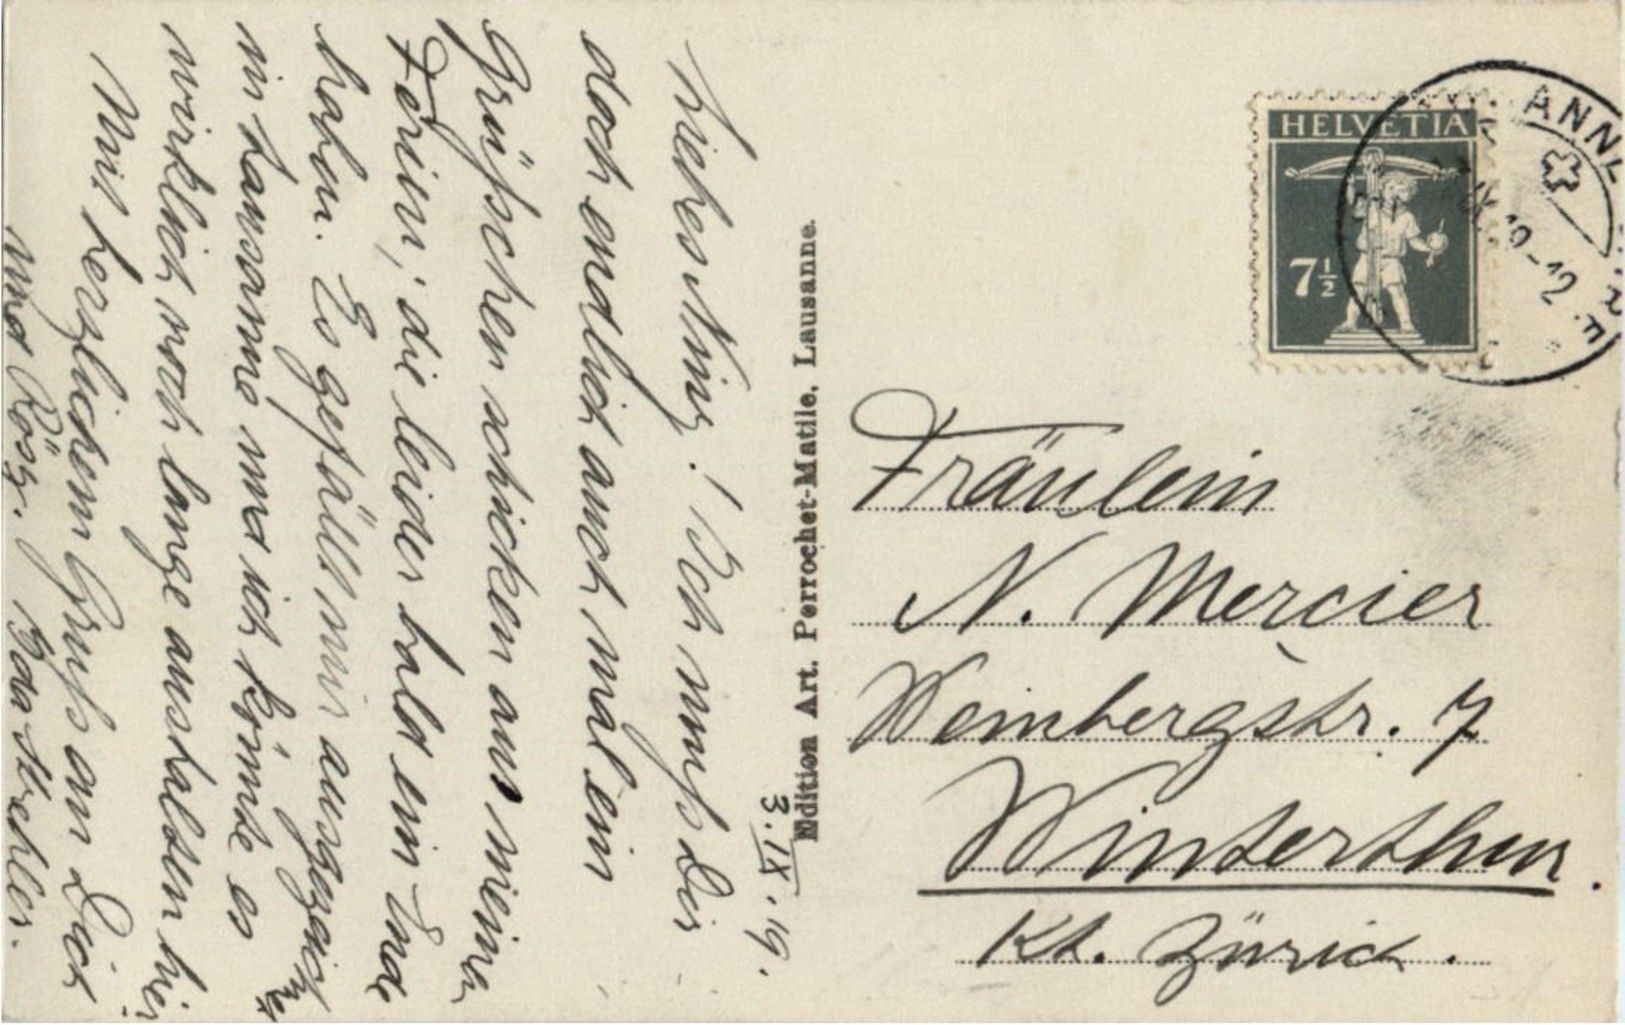 3. IX. 19.
Liebes Ninÿ! Ich muß Dir
doch endlich auch mal ein
Grüßchen schicken aus meinen
Ferien, die leider bald ein Ende
haben. Es gefällt mir ausgezeichnet
in Lausanne und ich könnte es
wirklich noch lange aushalten hier.
Mit herzlichem Gruß an Dich
und Rösÿ. Ida Strehler.
Edition Art. Perrochet-Matile, Lausanne.
HELVETIA
7½
Fräulein
N. Mercier
Weinbergstr. 7
Winterthur.
Kt. Zürich.